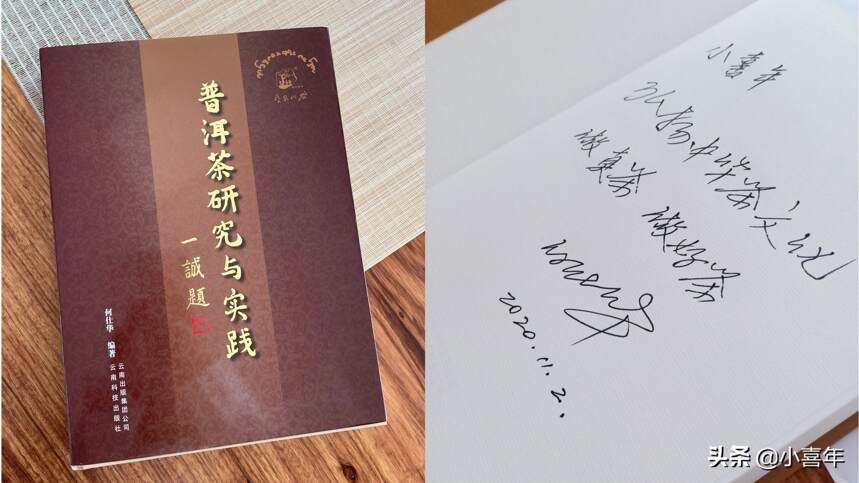 普洱茶研究与实践
一誠題
何仕华 编著
云南出版集团公司
云南科技出版社
小喜年
弘扬中华茶文化
做真茶 做好茶
2020.11.2.
头条 @小喜年